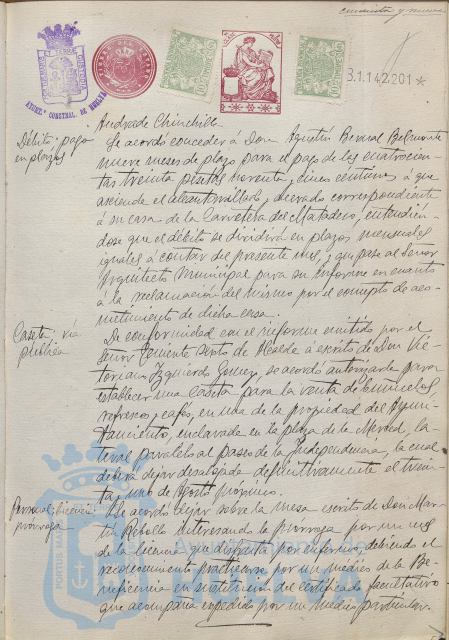 cuarenta y nueve
AYUNT.º CONSTNAL. DE HUELVA
B.1.142.201 *
Andrade Chinchilla.
Débito; pago
en plazos
Se acordó conceder á Don Agustín Bernal Belmonte
nueve meses de plazo para el pago de las cuatrocien-
tas treinta pesetas noventa y cinco centimos á que
asciende el alcantarillado y acerado correspondiente
á su casa de la Carretera del Matadero, entendien-
dose que el débito se dividirá en plazos mensuales
iguales á contar del presente mes, y que pase al Señor
Arquitecto Municipal para su informe en cuanto
á la reclamación del mismo por el concepto de aco-
metimiento de dicha casa.
Caseta vía
pública
De conformidad con el informe emitido por el
Señor Teniente Sexto de Alcalde á escrito de Don Vic-
toriano Izquierdo Gomez, se acordó autorizarle para
establecer una caseta para la venta de buñuelos,
refrescos y cafés, en una de la propiedad del Ayun-
tamiento, enclavada en la plaza de la Merced, la-
teral paralelo al paseo de la Independencia, la cual
deberá dejar desalojada definitivamente el trein-
ta y uno de Agosto próximo.
Personal; licencia
prórroga
Se acordó dejar sobre la mesa escrito de Don Mar-
tín Rebollo interesando la prórroga por un mes
de la licencia que disfruta por enfermo, debiendo el
reconocimiento practicarse por un médico de la Be-
neficencia en sustitución del certificado facultativo
que acompaña expedido por un médico particular.